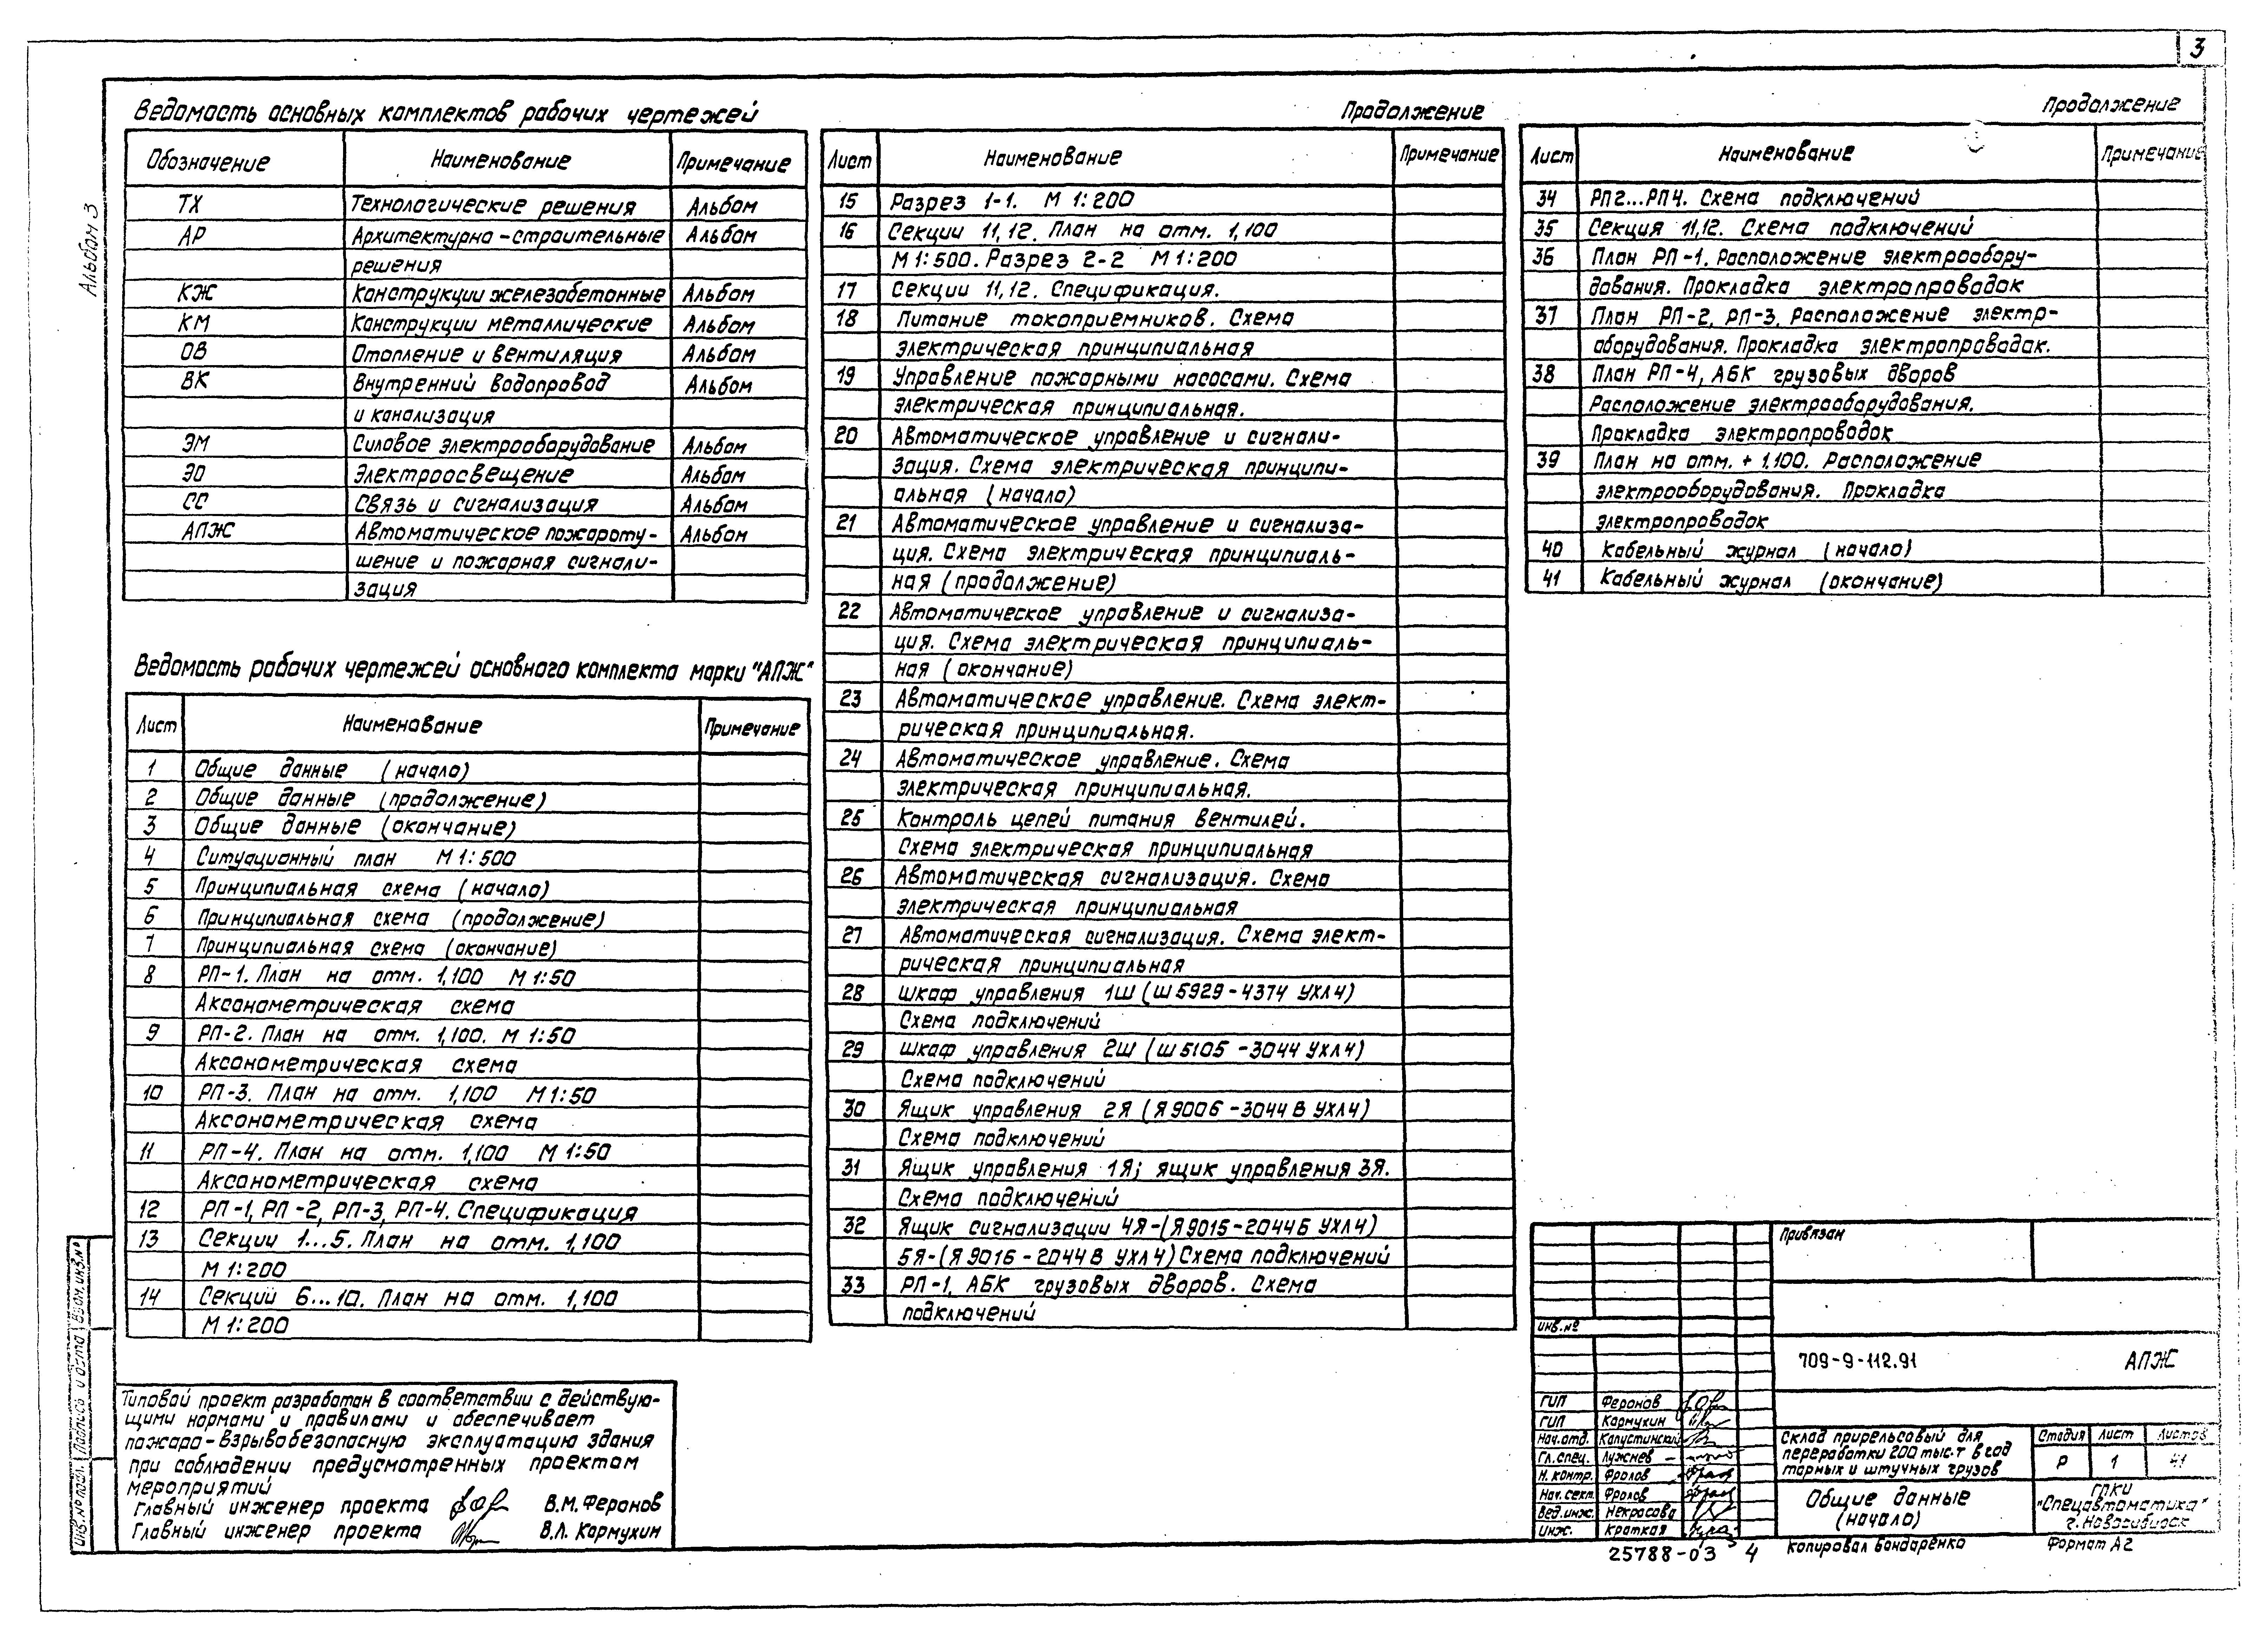 3
Альбом 3
Ведомость основных комплектов рабочих чертежей
Обозначение Наименование Примечание
ТХ Технологические решения Альбом
АР Архитектурно-строительные Альбом
решения
КЖ Конструкции железобетонные Альбом
КМ Конструкции металлические Альбом
ОВ Отопление и вентиляция Альбом
ВК Внутренний водопровод Альбом
и канализация
ЭМ Силовое электрооборудование Альбом
ЭО Электроосвещение Альбом
СС Связь и сигнализация Альбом
АПЖ Автоматическое пожароту- Альбом
шение и пожарная сигнали-
зация
Ведомость рабочих чертежей основного комплекта марки "АПЖ"
Лист Наименование Примечание
1 Общие данные (начало)
2 Общие данные (продолжение)
3 Общие данные (окончание)
4 Ситуационный план М 1:500
5 Принципиальная схема (начало)
6 Принципиальная схема (продолжение)
7 Принципиальная схема (окончание)
8 РП-1. План на отм. 1,100 М 1:50
Аксонометрическая схема
9 РП-2. План на отм. 1,100. М 1:50
Аксонометрическая схема
10 РП-3. План на отм. 1,100 М 1:50
Аксонометрическая схема
11 РП-4. План на отм. 1,100 М 1:50
Аксонометрическая схема
12 РП-1, РП-2, РП-3, РП-4. Спецификация
13 Секции 1...5. План на отм. 1,100
М 1:200
14 Секций 6...10. План на отм. 1,100
М 1:200
Продолжение
Лист Наименование Примечание
15 Разрез 1-1. М 1:200
16 Секции 11,12. План на отм. 1,100
М 1:500. Разрез 2-2 М 1:200
17 Секции 11,12. Спецификация.
18 Питание токоприемников. Схема
электрическая принципиальная
19 Управление пожарными насосами. Схема
электрическая принципиальная.
20 Автоматическое управление и сигнали-
зация. Схема электрическая принципи-
альная (начало)
21 Автоматическое управление и сигнализа-
ция. Схема электрическая принципиаль-
ная (продолжение)
22 Автоматическое управление и сигнализа-
ция. Схема электрическая принципиаль-
ная (окончание)
23 Автоматическое управление. Схема элект-
рическая принципиальная.
24 Автоматическое управление. Схема
электрическая принципиальная.
25 Контроль цепей питания вентилей.
Схема электрическая принципиальная
26 Автоматическая сигнализация. Схема
электрическая принципиальная
27 Автоматическая сигнализация. Схема элект-
рическая принципиальная
28 Шкаф управления 1Ш (Ш5929-4374 УХЛ4)
Схема подключений
29 Шкаф управления 2Ш (Ш5105-3044 УХЛ4)
Схема подключений
30 Ящик управления 2Я (Я9006-3044В УХЛ4)
Схема подключений
31 Ящик управления 1Я; ящик управления 3Я.
Схема подключений
32 Ящик сигнализации 4Я-(Я9015-2044Б УХЛ4)
5Я-(Я9016-2044В УХЛ4) Схема подключений
33 РП-1, АБК грузовых дворов. Схема
подключений
Продолжение
Лист Наименование Примечание
34 РП2...РП4. Схема подключений
35 Секция 11,12. Схема подключений
36 План РП-1. Расположение электрообору-
дования. Прокладка электропроводок
37 План РП-2, РП-3. Расположение электр-
оборудования. Прокладка электропроводок.
38 План РП-4, АБК грузовых дворов
Расположение электрооборудования.
Прокладка электропроводок
39 План на отм. +1,100. Расположение
электрооборудования. Прокладка
электропроводок
40 Кабельный журнал (начало)
41 Кабельный журнал (окончание)
Типовой проект разработан в соответствии с действую-
щими нормами и правилами и обеспечивает
пожаро-взрывобезопасную эксплуатацию здания
при соблюдении предусмотренных проектом
мероприятий
Главный инженер проекта В.М. Феронов
Главный инженер проекта В.Л. Кармухин
Инв.№ подл. Подпись и дата Взам.инв.№
Привязан
инв.№
709-9-112.91 АПЖ
ГИП Феронов
ГИП Кармухин
Нач.отд. Капустинский
Гл.спец. Лужнев
Н.контр. Фролов
Нач.сект. Фролов
Вед.инж. Некрасова
инж. Краткая
Склад прирельсовый для
переработки 200 тыс.т в год
тарных и штучных грузов
Стадия Лист Листов
Р 1 41
Общие данные
(начало)
ГПКИ
"Спецавтоматика"
г.Новосибирск
25788-03 4 Копировал Бондаренко Формат А2